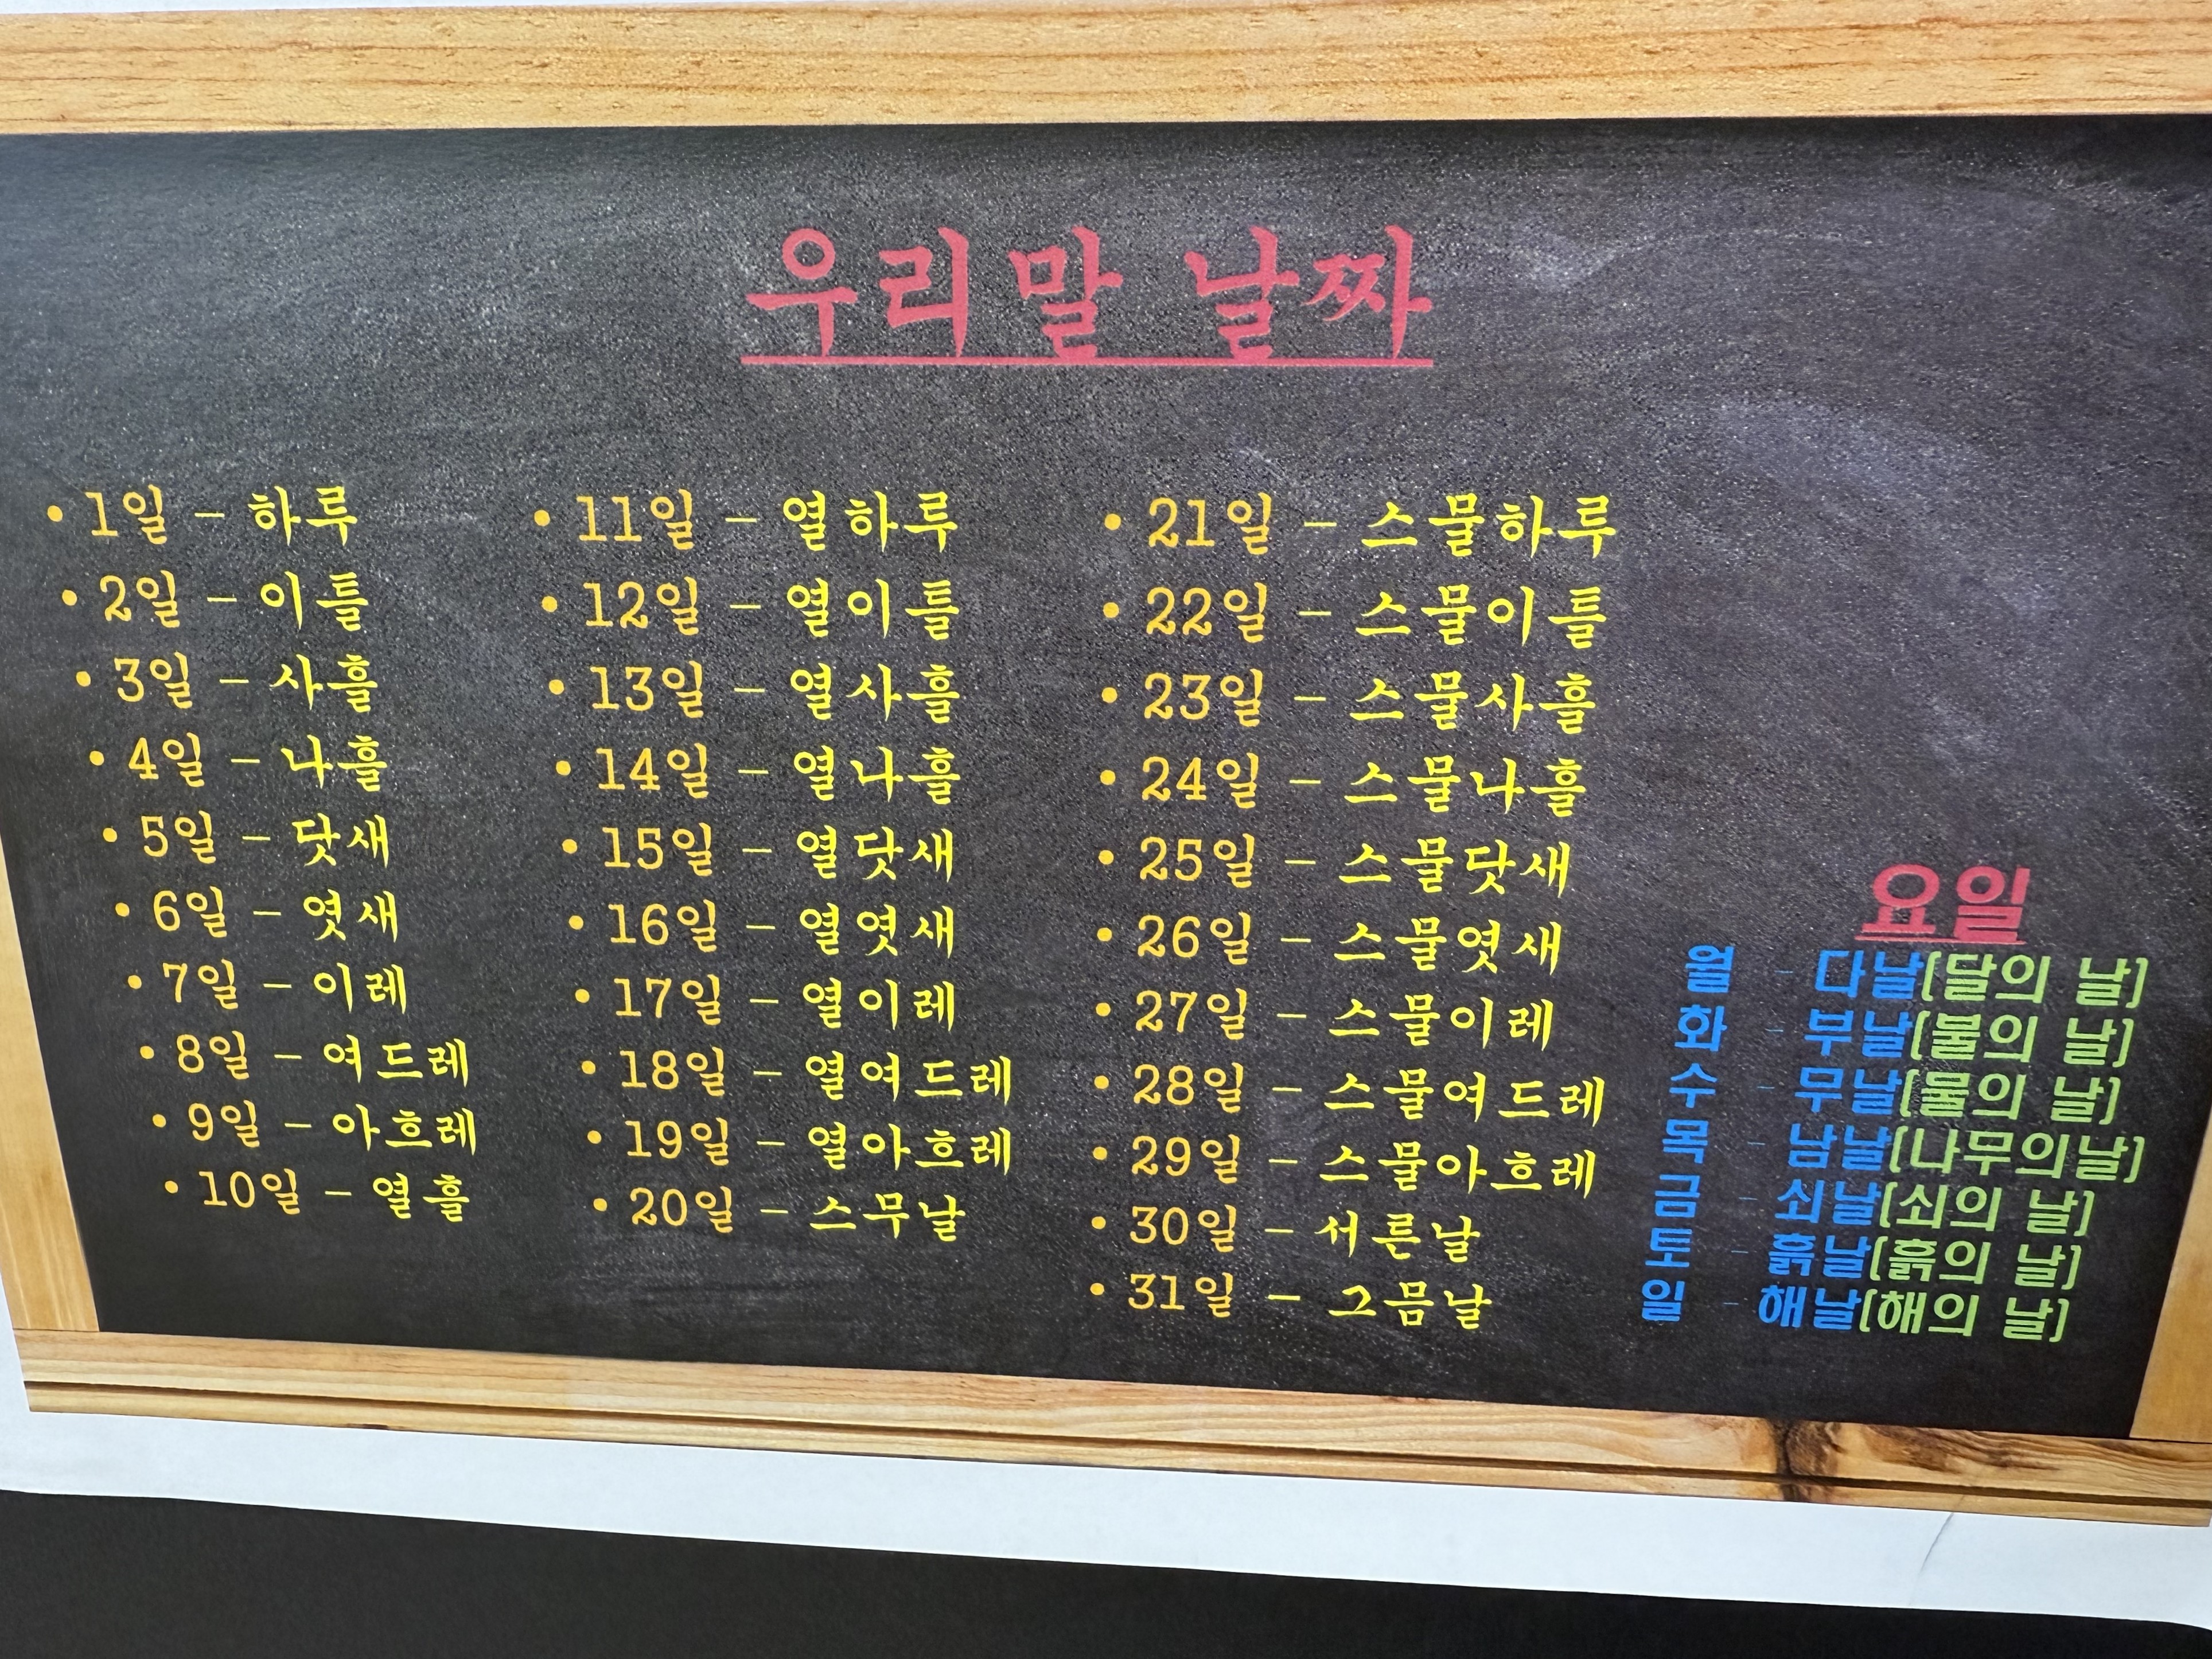 우리말 날짜
• 1일 – 하루
• 2일 – 이틀
• 3일 – 사흘
• 4일 – 나흘
• 5일 – 닷새
• 6일 – 엿새
• 7일 – 이레
• 8일 – 여드레
• 9일 – 아흐레
• 10일 – 열흘
• 11일 – 열하루
• 12일 – 열이틀
• 13일 – 열사흘
• 14일 – 열나흘
• 15일 – 열닷새
• 16일 – 열엿새
• 17일 – 열이레
• 18일 – 열여드레
• 19일 – 열아흐레
• 20일 – 스무날
• 21일 – 스물하루
• 22일 – 스물이틀
• 23일 – 스물사흘
• 24일 – 스물나흘
• 25일 – 스물닷새
• 26일 – 스물엿새
• 27일 – 스물이레
• 28일 – 스물여드레
• 29일 – 스물아흐레
• 30일 – 서른날
• 31일 – 그믐날
요일
월 - 다날(달의 날)
화 - 부날(불의 날)
수 - 무날(물의 날)
목 - 남날(나무의날)
금 - 쇠날(쇠의 날)
토 - 흙날(흙의 날)
일 - 해날(해의 날)